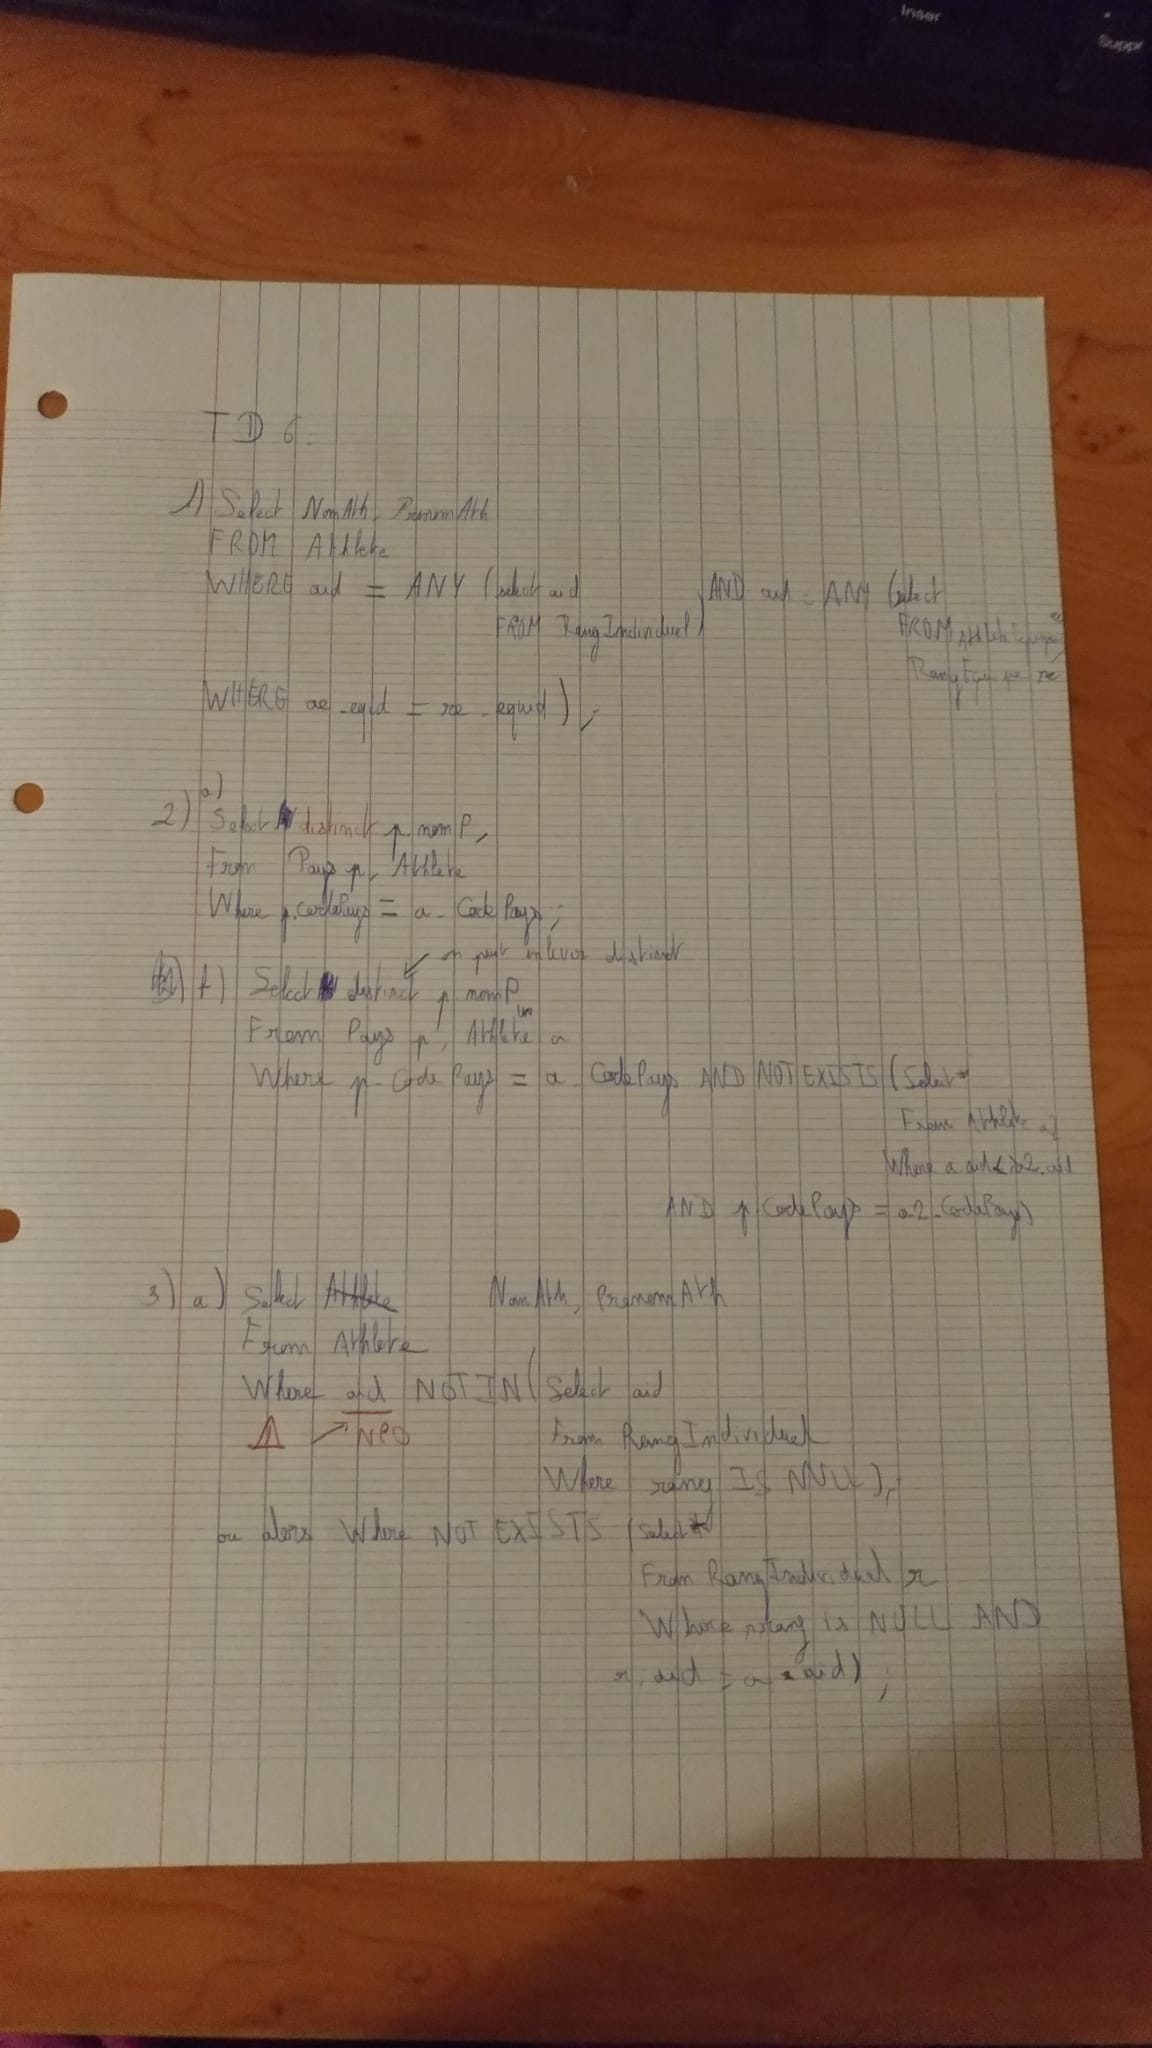 Inser
Suppr
TD 6.
1) Select NomAth, PrenomAth
FROM Athlete
WHERE aid = ANY (select aid
FROM RangIndividuel)
AND aid = ANY (select
FROM AthleteEquipe
RangEquipe re
WHERE ae.eqid = re.equid);
2) a)
Select distinct p.nomP,
From Pays p, Athlete
Where p.CodePays = a.CodePays;
on peut enlever distinct
b) Select distinct p nomP
From Pays p, Athlete a
Where p.CodePays = a.CodePays AND NOT EXISTS (Select *
From Athlete a2
Where a.aid <> a2.aid
AND p.CodePays = a2.CodePays)
3) a) Select NomAth, PrenomAth
From Athlete
Where aid NOT IN (Select aid
From RangIndividuel
Where rang IS NULL);
ou alors Where NOT EXISTS (Select *
From RangIndividuel r
Where rang is NULL AND
r.aid = a.aid);